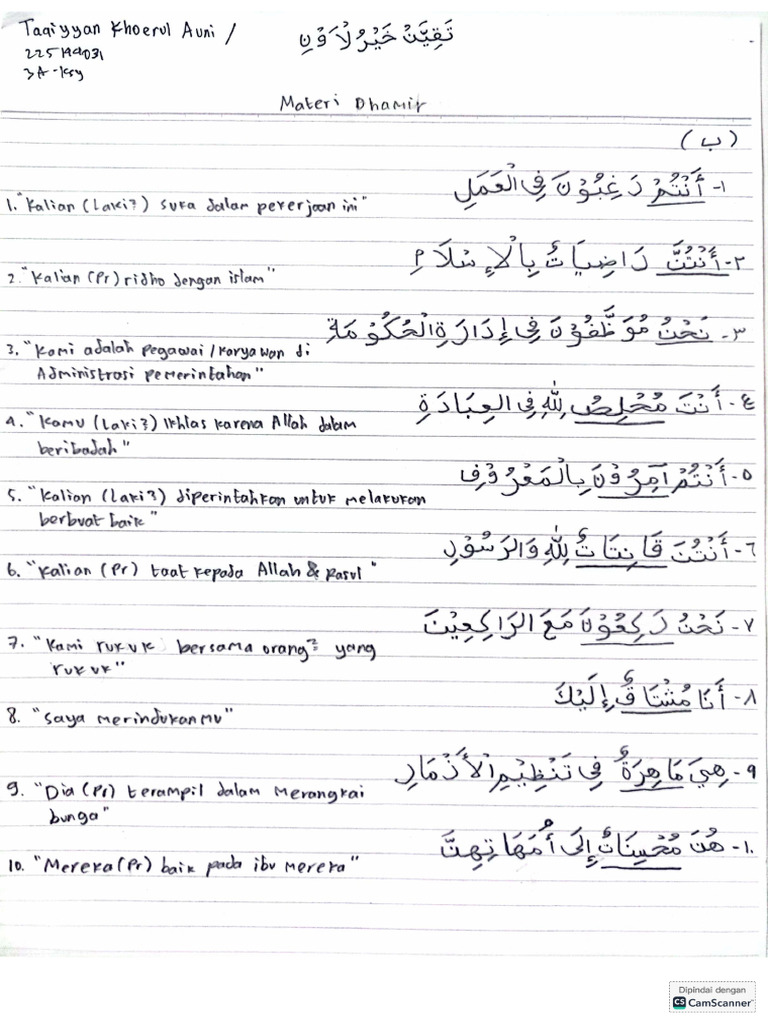 Taqiyyan Khoerul Auni /
تَقِيَّنْ خَيْرُلْاَوْنِ
225194031
3A-Ksy
Materi Dhamir
(ب)
١- أَنْتُمْ رَغِبُوْنَ فِى الْعَمَلِ
1. "Kalian (Laki²) suka dalam pekerjaan ini"
٢- أَنْتُنَّ رَاضِيَاتٌ بِالْإِسْلَامِ
2. "Kalian (Pr) ridho dengan islam"
٣- نَحْنُ مُوَظَّفُوْنَ فِى إِدَارَةِ الْحُكُوْمَةِ
3. "Kami adalah pegawai/karyawan di
Administrasi pemerintahan"
٤- أَنْتَ مُخْلِصٌ لِلّٰهِ فِى الْعِبَادَةِ
4. "Kamu (Laki²) Ikhlas karena Allah dalam
beribadah"
٥- أَنْتُمْ آمِرُوْنَ بِالْمَعْرُوْفِ
5. "Kalian (Laki²) diperintahkan untuk melakukan
berbuat baik"
٦- أَنْتُنَ قَانِتَاتٌ لِلّٰهِ وَالرَسُوْلِ
6. "Kalian (Pr) taat kepada Allah & Rasul"
٧- نَحْنُ رَكِعُوْنَ مَعَ الرَاكِعِيْنَ
7. "Kami rukuk bersama orang² yang
rukuk"
٨- أَنَا مُشْتَاقٌ إِلَيْكَ
8. "Saya merindukanmu"
٩- هِيَ مَاهِرَةٌ فِي تَنْظِيْمِ الْأَزْهَارِ
9. "Dia (Pr) terampil dalam Merangkai
bunga"
١٠- هُنَ مُحْسِنَاتٌ إِلَى أُمَّهَاتِهِنَّ
10. "Mereka (Pr) baik pada ibu mereka"
Dipindai dengan
CS CamScanner